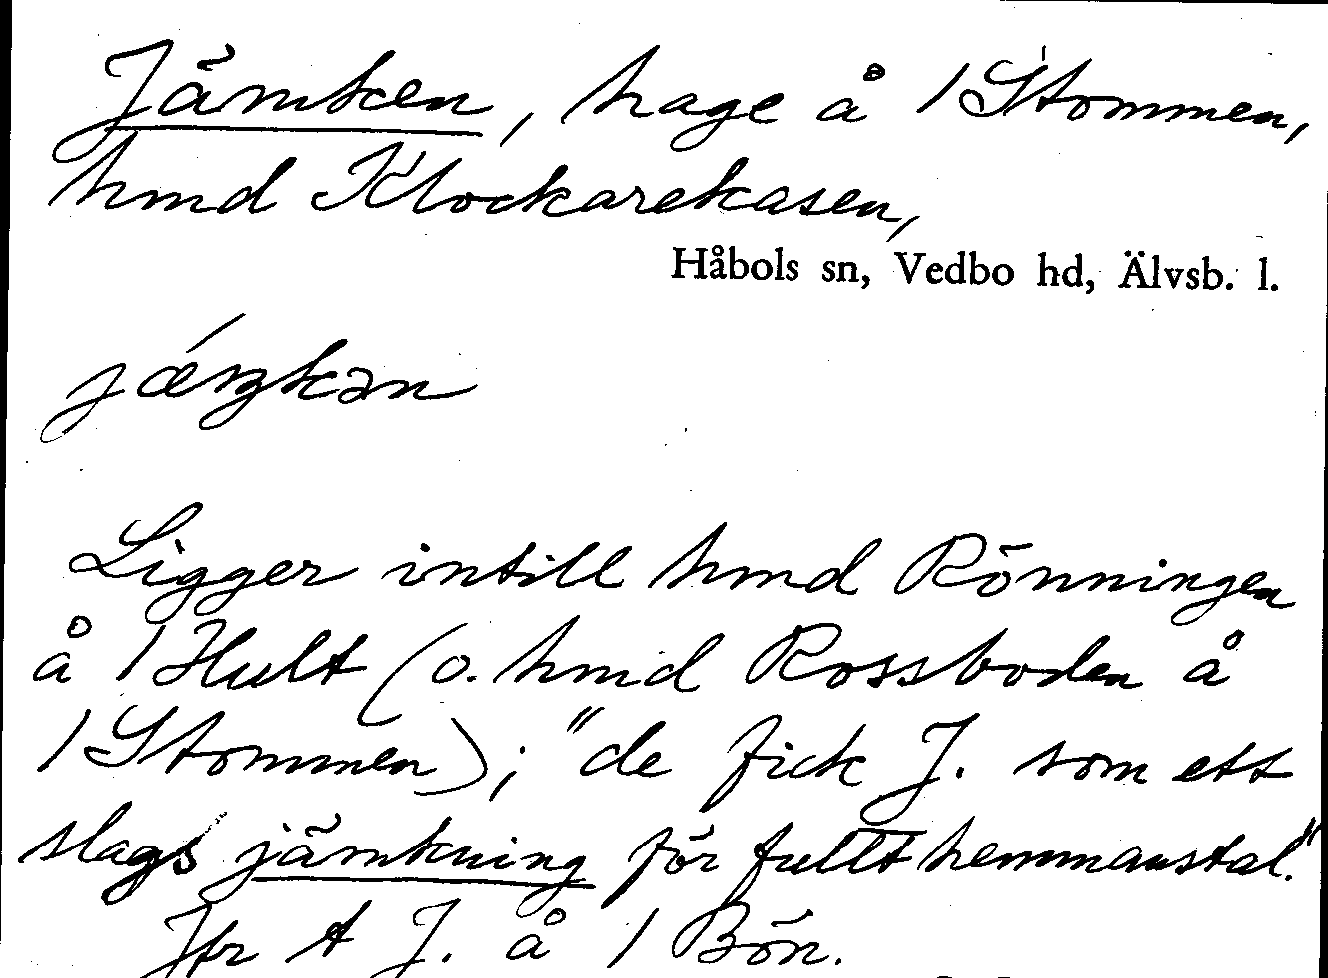 Jämken, hage å 1 Stommen,
hmd Klockarekasen,
Håbols sn, Vedbo hd, Älvsb. l.
jǽmkən
Ligger intill hmd Rönningen
å 1 Hult (o. hmd Rossboden å
1 Stommen); "de fick J. som ett
slags jämkning för fullt hemmanstal."
Jfr t J. å 1 Bön.